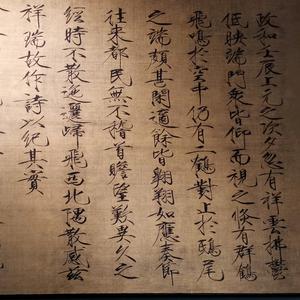 政和壬辰上元之次夕忽有祥雲拂鬱
低映端門衆皆仰而視之倏有群鶴
飛鳴於空中仍有二鶴對止於鴟尾
之端頗甚閑適餘皆翱翔如應奏節
往來都民無不稽首瞻望歎異久之
經時不散迤邐歸飛西北隅散感茲
祥瑞故作詩以紀其實